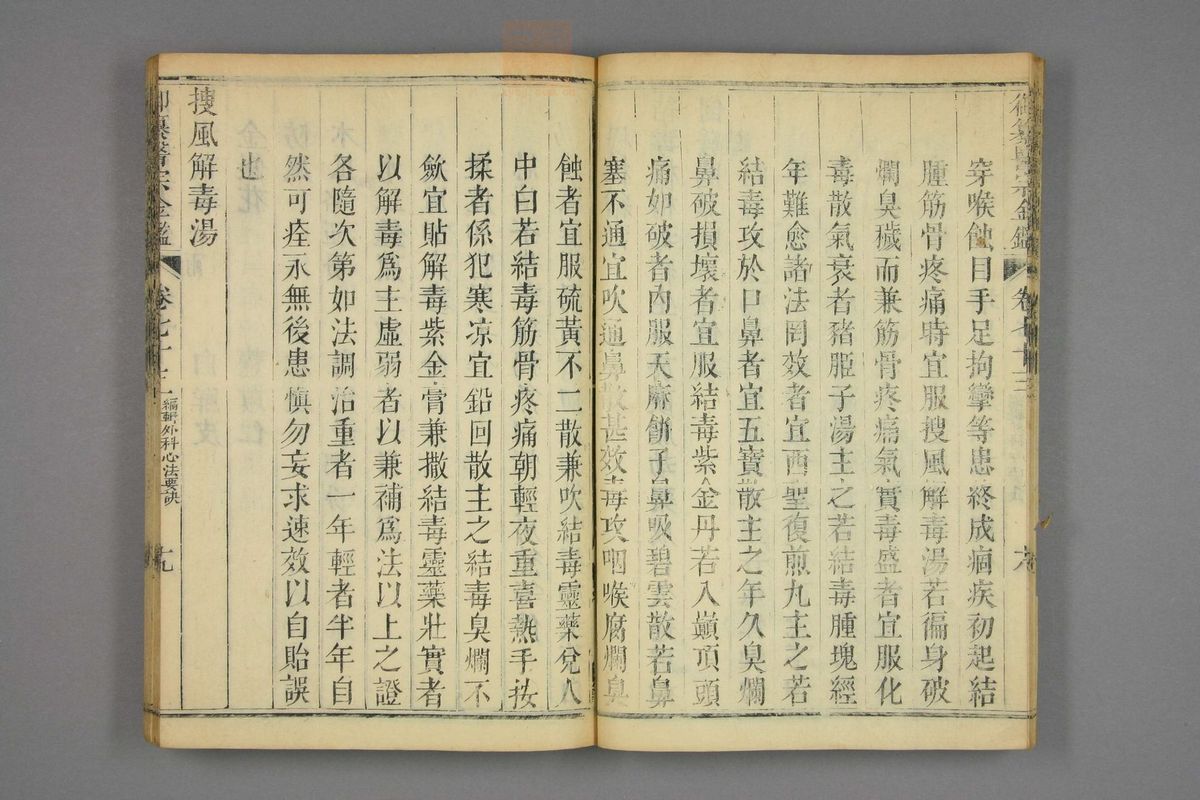 御纂醫宗金鑑 卷七十三 六
穿喉蝕目手足拘攣等患終成痼疾初起結
腫筋骨疼痛時宜服搜風解毒湯若徧身破
爛臭穢而兼筋骨疼痛氣實毒盛者宜服化
毒散氣衰者豬胆子湯主之若結毒腫塊經
年難愈諸法罔效者宜西聖復煎丸主之若
結毒攻於口鼻者宜五寶散主之年久臭爛
鼻破損壞者宜服結毒紫金丹若入巔頂頭
痛如破者內服天麻餅子鼻吸碧雲散若鼻
塞不通宜吹通鼻散甚效毒攻咽喉腐爛臭
蝕者宜服硫黃不二散兼吹結毒靈藥兌人
中白若結毒筋骨疼痛朝輕夜重喜熱手按
揉者係犯寒凉宜鉛回散主之結毒臭爛不
歛宜貼解毒紫金膏兼撒結毒靈藥壯實者
以解毒爲主虛弱者以兼補爲法以上之證
各隨次第如法調治重者一年輕者半年自
然可痊永無後患慎勿妄求速效以自貽誤
也
搜風解毒湯
御纂醫宗金鑑 卷七十三 編輯外科心法要訣 七